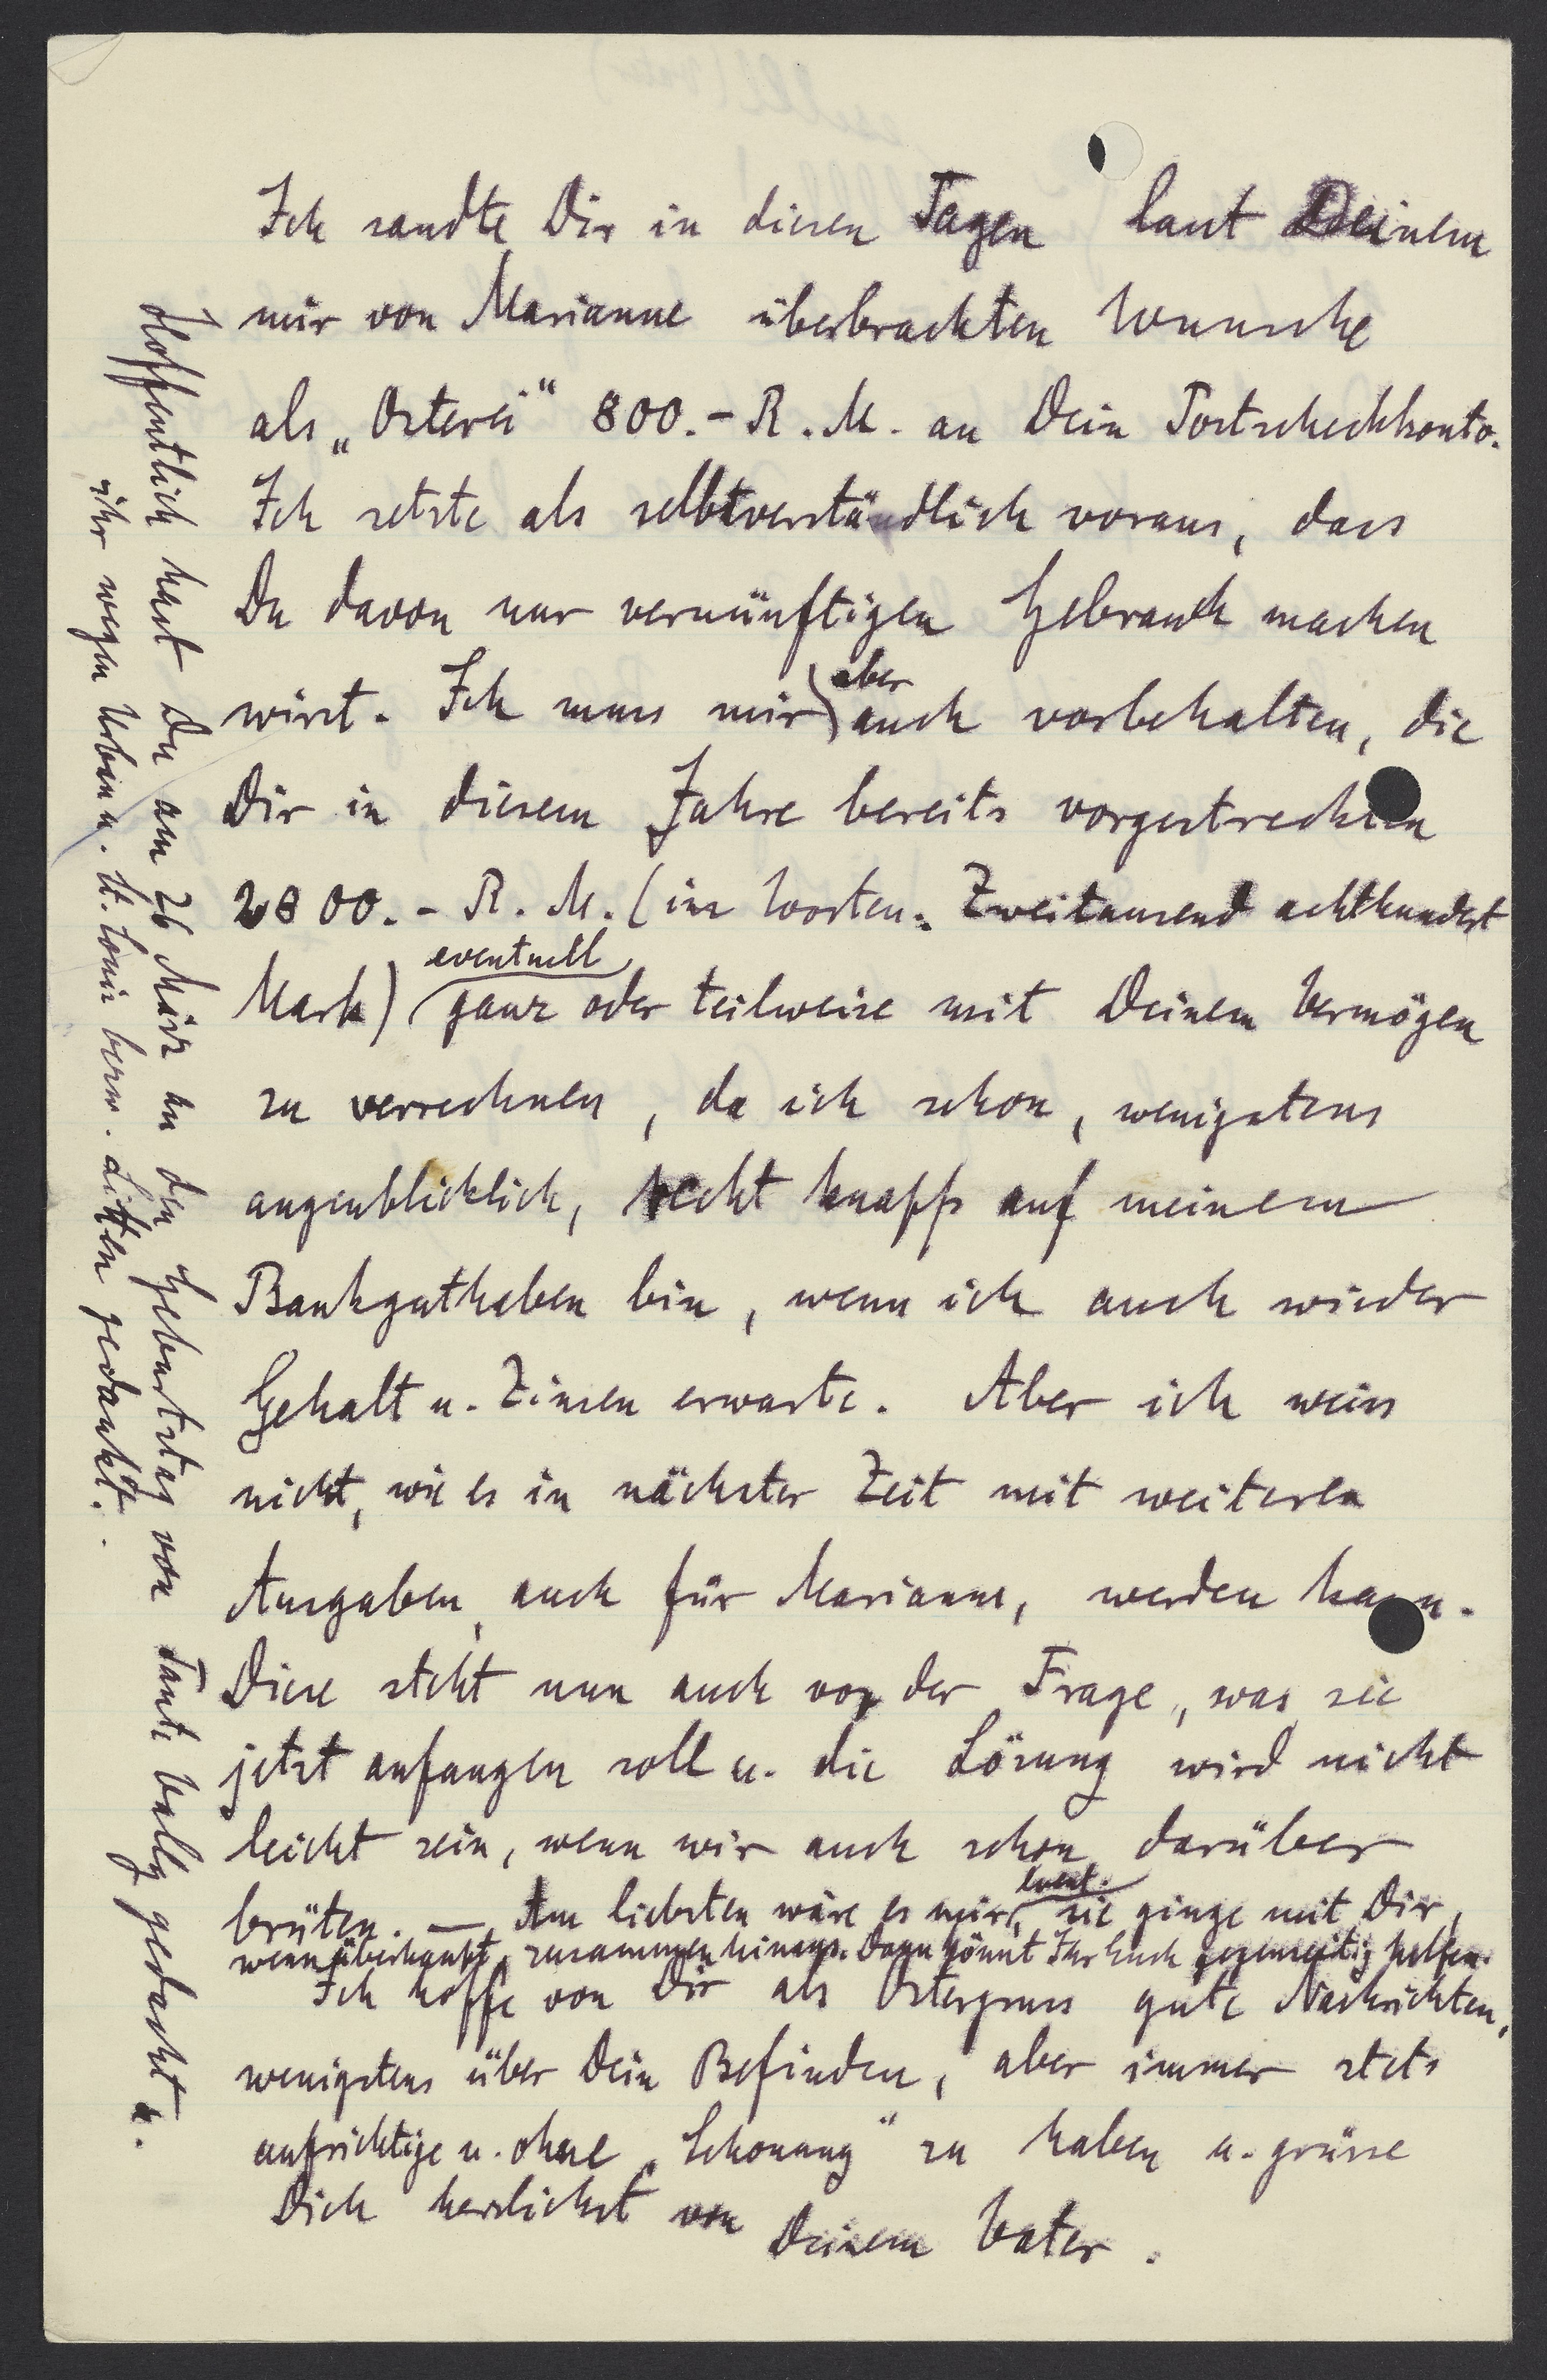 Ich sandte Dir in diesen Tagen laut Deinem
mir von Marianne überbrachten Wunsche
als „Osterei“ 800.- R.M. an Dein Postscheckkonto.
Ich setzte als selbtverständlich voraus, dass
Du davon nur vernünftigen Gebrauch machen
wirst. Ich muss mir aber auch vorbehalten, die
Dir in diesem Jahre bereits vorgestreckten
2800.- R.M. (in Worten: Zweitausend achthundert
Mark) eventuell ganz oder teilweise mit Deinem Vermögen
zu verrechnen, da ich schon, wenigstens
augenblicklich, recht knapp auf meinem
Bankguthaben bin, wenn ich auch wieder
Gehalt u. Zinsen erwarte. Aber ich weiss
nicht, wie es in nächster Zeit mit weiteren
Ausgaben, auch für Marianne, werden kann.
Diese steht nun auch vor der Frage, was sie
jetzt anfangen soll u. die Lösung wird nicht
leicht sein, wenn wir auch schon darüber
brüten. — Am liebsten wäre es mir, event. sie ginge mit Dir,
wenn überhaupt, zusammen hinaus. Dann könnt Ihr Euch gegenseitig helfen.
Ich hoffe von Dir als Ostergruss gute Nachrichten,
wenigstens über Dein Befinden, aber immer stets
aufrichtige u. ohne „Schonung“ zu haben u. grüsse
Dich herzlichst von Deinem Vater.
Hoffentlich hast Du am 26 März an den Geburtstag von Tante Vally gedacht u.
ihr wegen Urbin u. St. Louis bezw. gedankt.